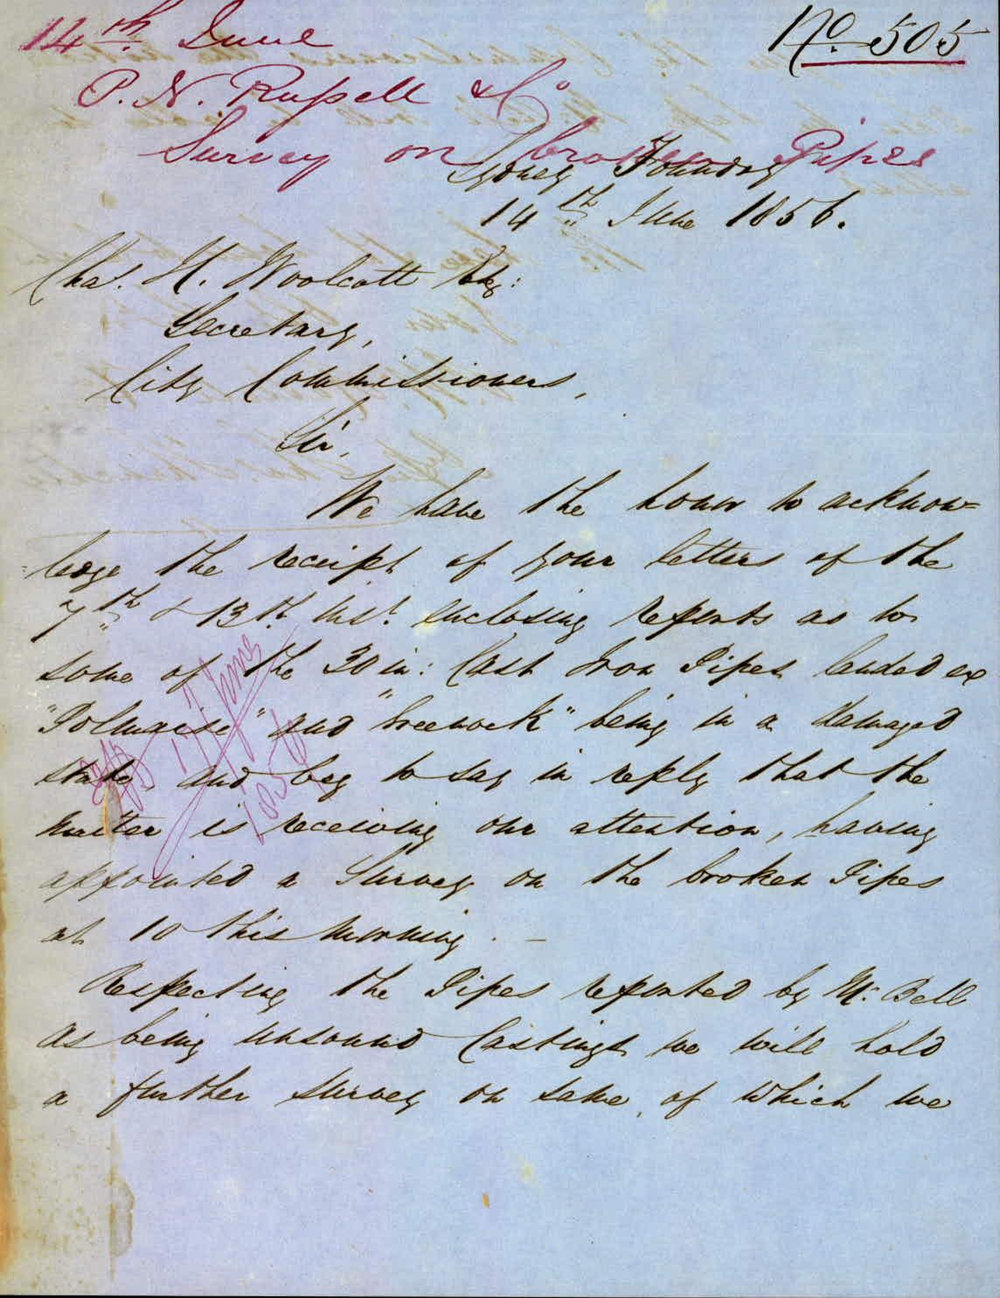 14th June
No 505
P. N. Russell & Co
Survey on broken Pipes
Sydney Foundry
14th June 1856.
Chas. H. Woolcott Esq:
Secretary,
City Commissioners,
Sir,
We have the honor to acknow=
=ledge the receipt of your letters of the
7th & 13th Inst. enclosing reports as to
some of the 30 in: Cast Iron Pipes landed ex
"Polmaise" and "Greenock" being in a damaged
state and beg to say in reply that the
matter is receiving our attention, having
appointed a Survey on the broken Pipes
at 10 this morning. —
Respecting the Pipes reported by Mr. Bell
as being unsound Castings we will hold
a further survey on same, of which we
17 June
1856